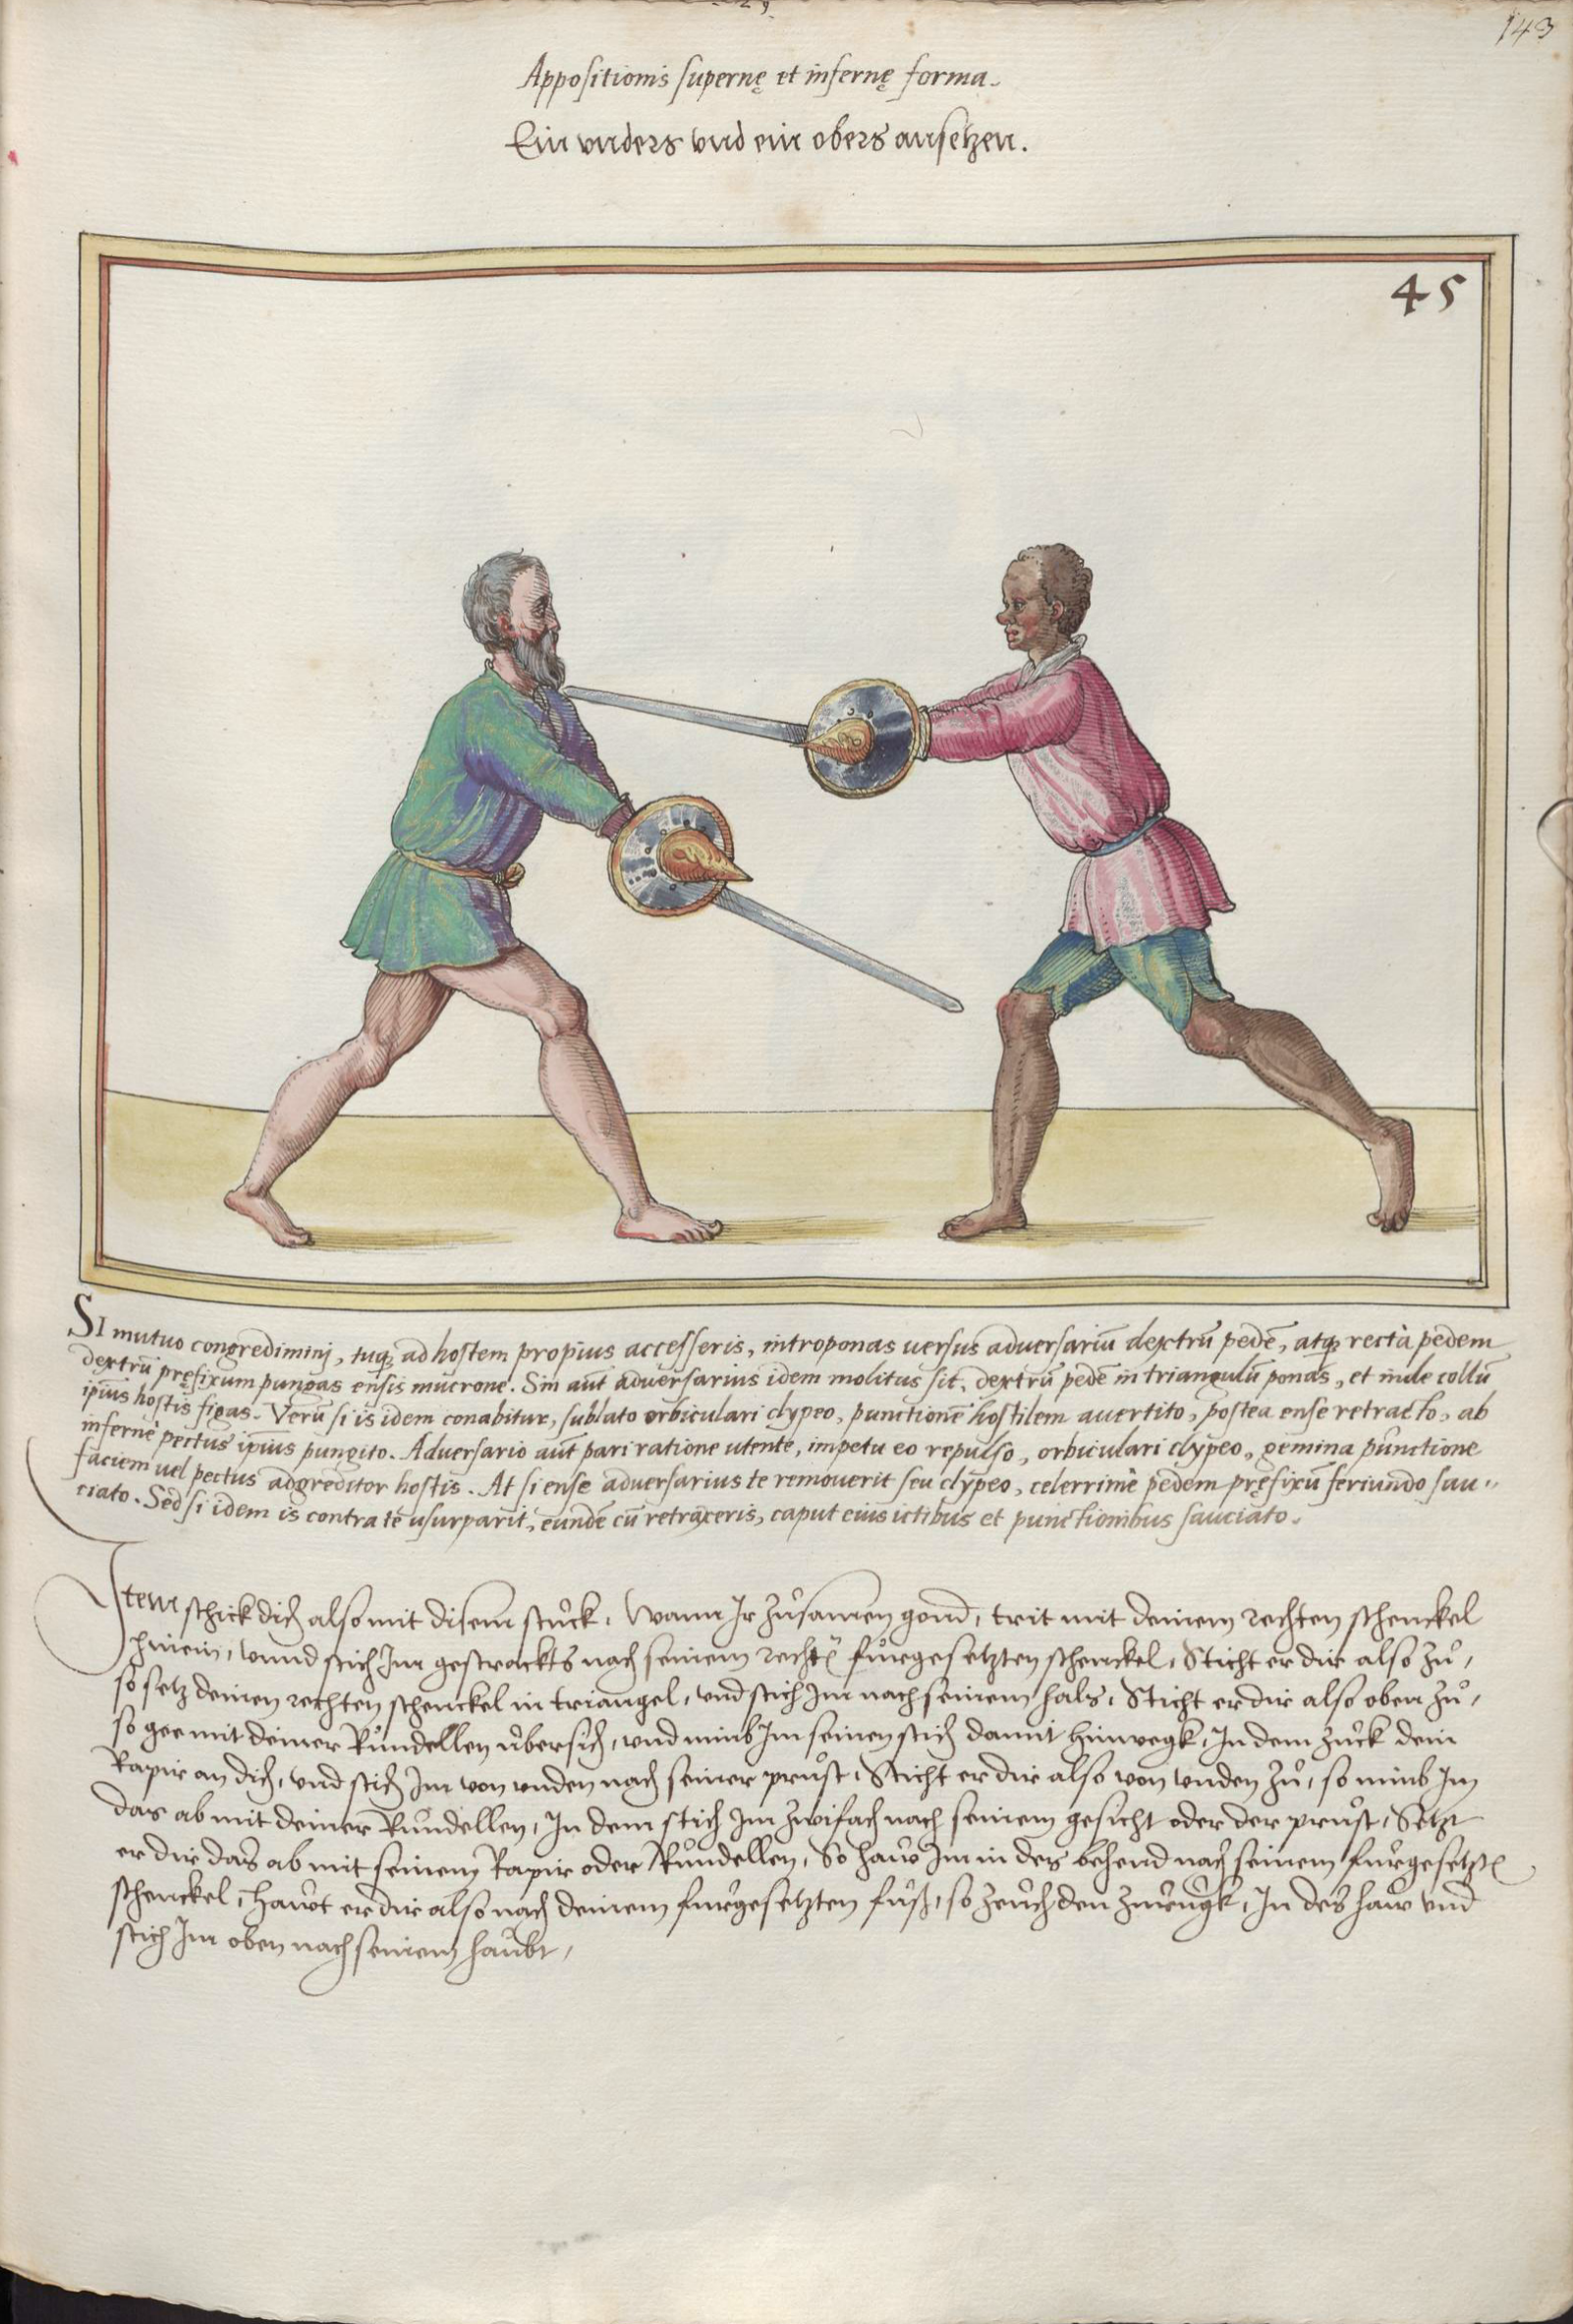 29
143
Appositionis supernę et infernę forma.
Ein vnders vnd ein obers ansetzen.
45
SI mutuo congredimini, tuq₃ ad hostem propius accesseris, introponas uersus aduersariū dextrū pedē, atq₃ rectà pedem
dextrū pręfixum pungas ensis mucrone. Sin aūt aduersarius idem molitus sit, dextrū pedē in triangulū ponas, et inde collū
ipsius hostis figas. Verū si is idem conabitur, sublato orbiculari clypeo, punctionē hostilem auertito, postea ense retracto, ab
infernè pectus ipsius pungito. Aduersario aūt pari ratione utente, impetu eo repulso, orbiculari clypeo, gemina punctione
faciem uel pectus adgreditor hostis. At si ense aduersarius te remouerit seu clypeo, celerrimè pedem pręfixū feriundo sau„
ciato. Sed si idem is contra te usurparit, eundē cū retraxeris, caput eius ictibus et punctionibus sauciato.
Item schick dich also mit disem stuck, Wann Ir zůsamen gond, trit mit deinem rechten schenckel
hinein, vnnd stich Im gestrackts nach seinem rechtē fürgesetzten schenckel, Sticht er dir also zů,
so setz deinen rechten schenckel in triangel, vnd stich Im nach seinem hals, Sticht er dir also oben zů,
so gee mit deiner Rundellen übersich, vnd nimb Im seinen stich damit hinwegk, In dem zuck dein
Rapir an dich, vnd stich Im von vnden nach seiner prust, Sticht er dir also von vnden zů, so nimb Im
das ab mit deiner Rundellen, In dem stich Im zwifach nach seinem gesicht oder der prust, Setzt
er dir das ab mit seinem Rapir oder Rundellen, So haw Im in des behend nach seinem fürgesetztē
schenckel, Hawt er dir also nach deinem fürgesetzten fůß, so zeuch den zurugk, In des haw vnd
stich Im oben nach seinem haubt,